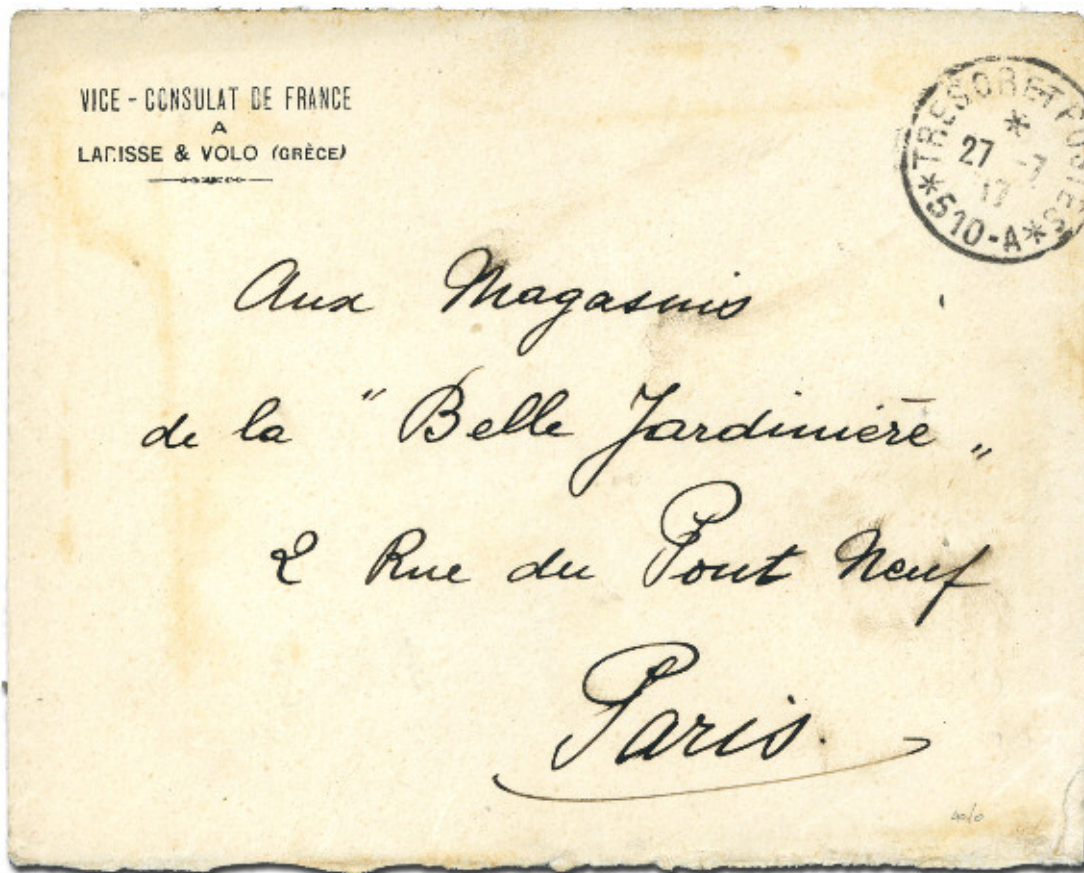 VICE - CONSULAT DE FRANCE
A
LARISSE & VOLO (GRÈCE)
*TRESOR ET POSTES*
*
27 -7
17
510-A
Aux Magasins
de la "Belle Jardinière"
2 Rue du Pont Neuf
Paris.